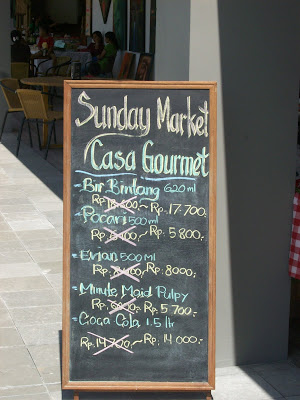 Sunday Market
Casa Gourmet
- Bir Bintang 620 ml
Rp ~ Rp. 17.700,
- Pocari 500 ml
Rp. ~ Rp. 5.800,-
- Evian 500 ml
Rp. ~ Rp. 8000,-
- Minute Maid Pulpy
Rp. ~ Rp. 5.700
- Coca Cola 1.5 ltr
Rp. 14.700,- Rp. 14 000,-